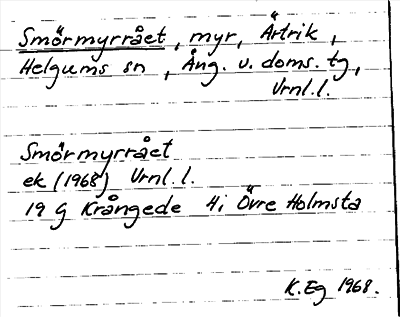 Smörmyrrået, myr, Ärtrik,
Helgums sn, Ång. v. doms. tg,
Vrnl.l.
Smörmyrrået
ek (1968) Vrnl.l.
19 G Krångede 4i Övre Holmsta
K.Eg 1968.